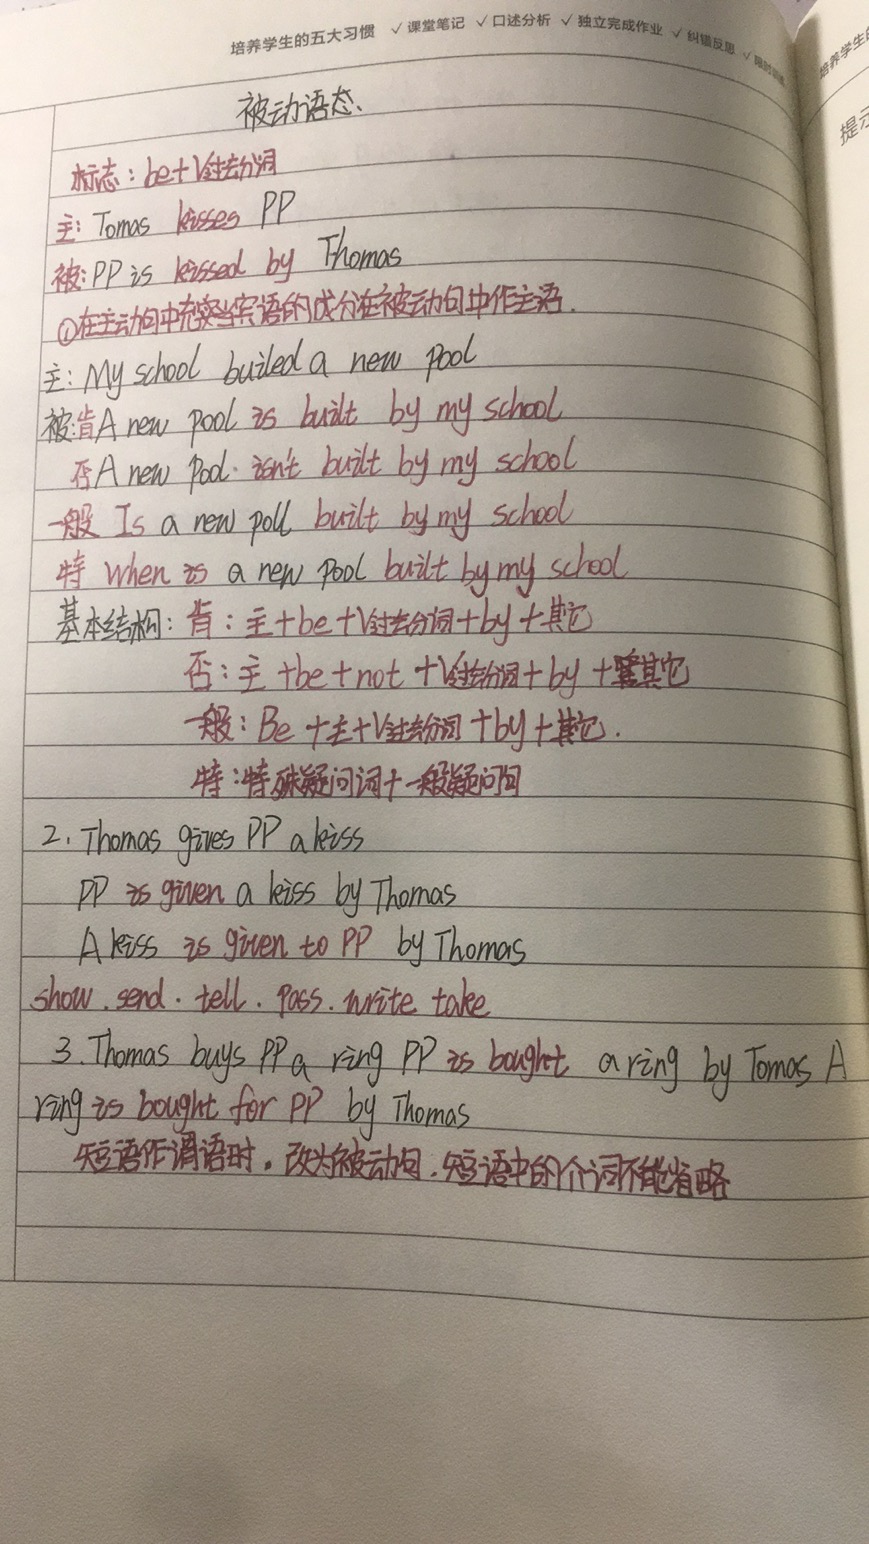 培养学生的五大习惯 ✓课堂笔记 ✓口述分析 ✓独立完成作业 ✓纠错反思 ✓限时训练
培养学生的
提示
被动语态、
标志：be+V过去分词
主: Tomas kisses PP
被: PP is kissed by Thomas
①在主动句中充当宾语的成分在被动句中作主语.
主: My school builed a new pool
被:肯A new pool is built by my school
否A new pool. isn't built by my school
一般 Is a new poll built by my school
特 When is a new pool built by my school
基本结构：肯：主+be+V过去分词+by+其它
否：主+be+not+V过去分词+by+其它
一般：Be+主+V过去分词+by+其它.
特：特殊疑问词+一般疑问句
2. Thomas gives PP a kiss
PP is given a kiss by Thomas
A kiss is given to PP by Thomas
show. send. tell. pass. write take
3. Thomas buys PP a ring PP is bought a ring by Tomas A
ring is bought for PP by Thomas
短语作谓语时，改为被动句，短语中的介词不能省略